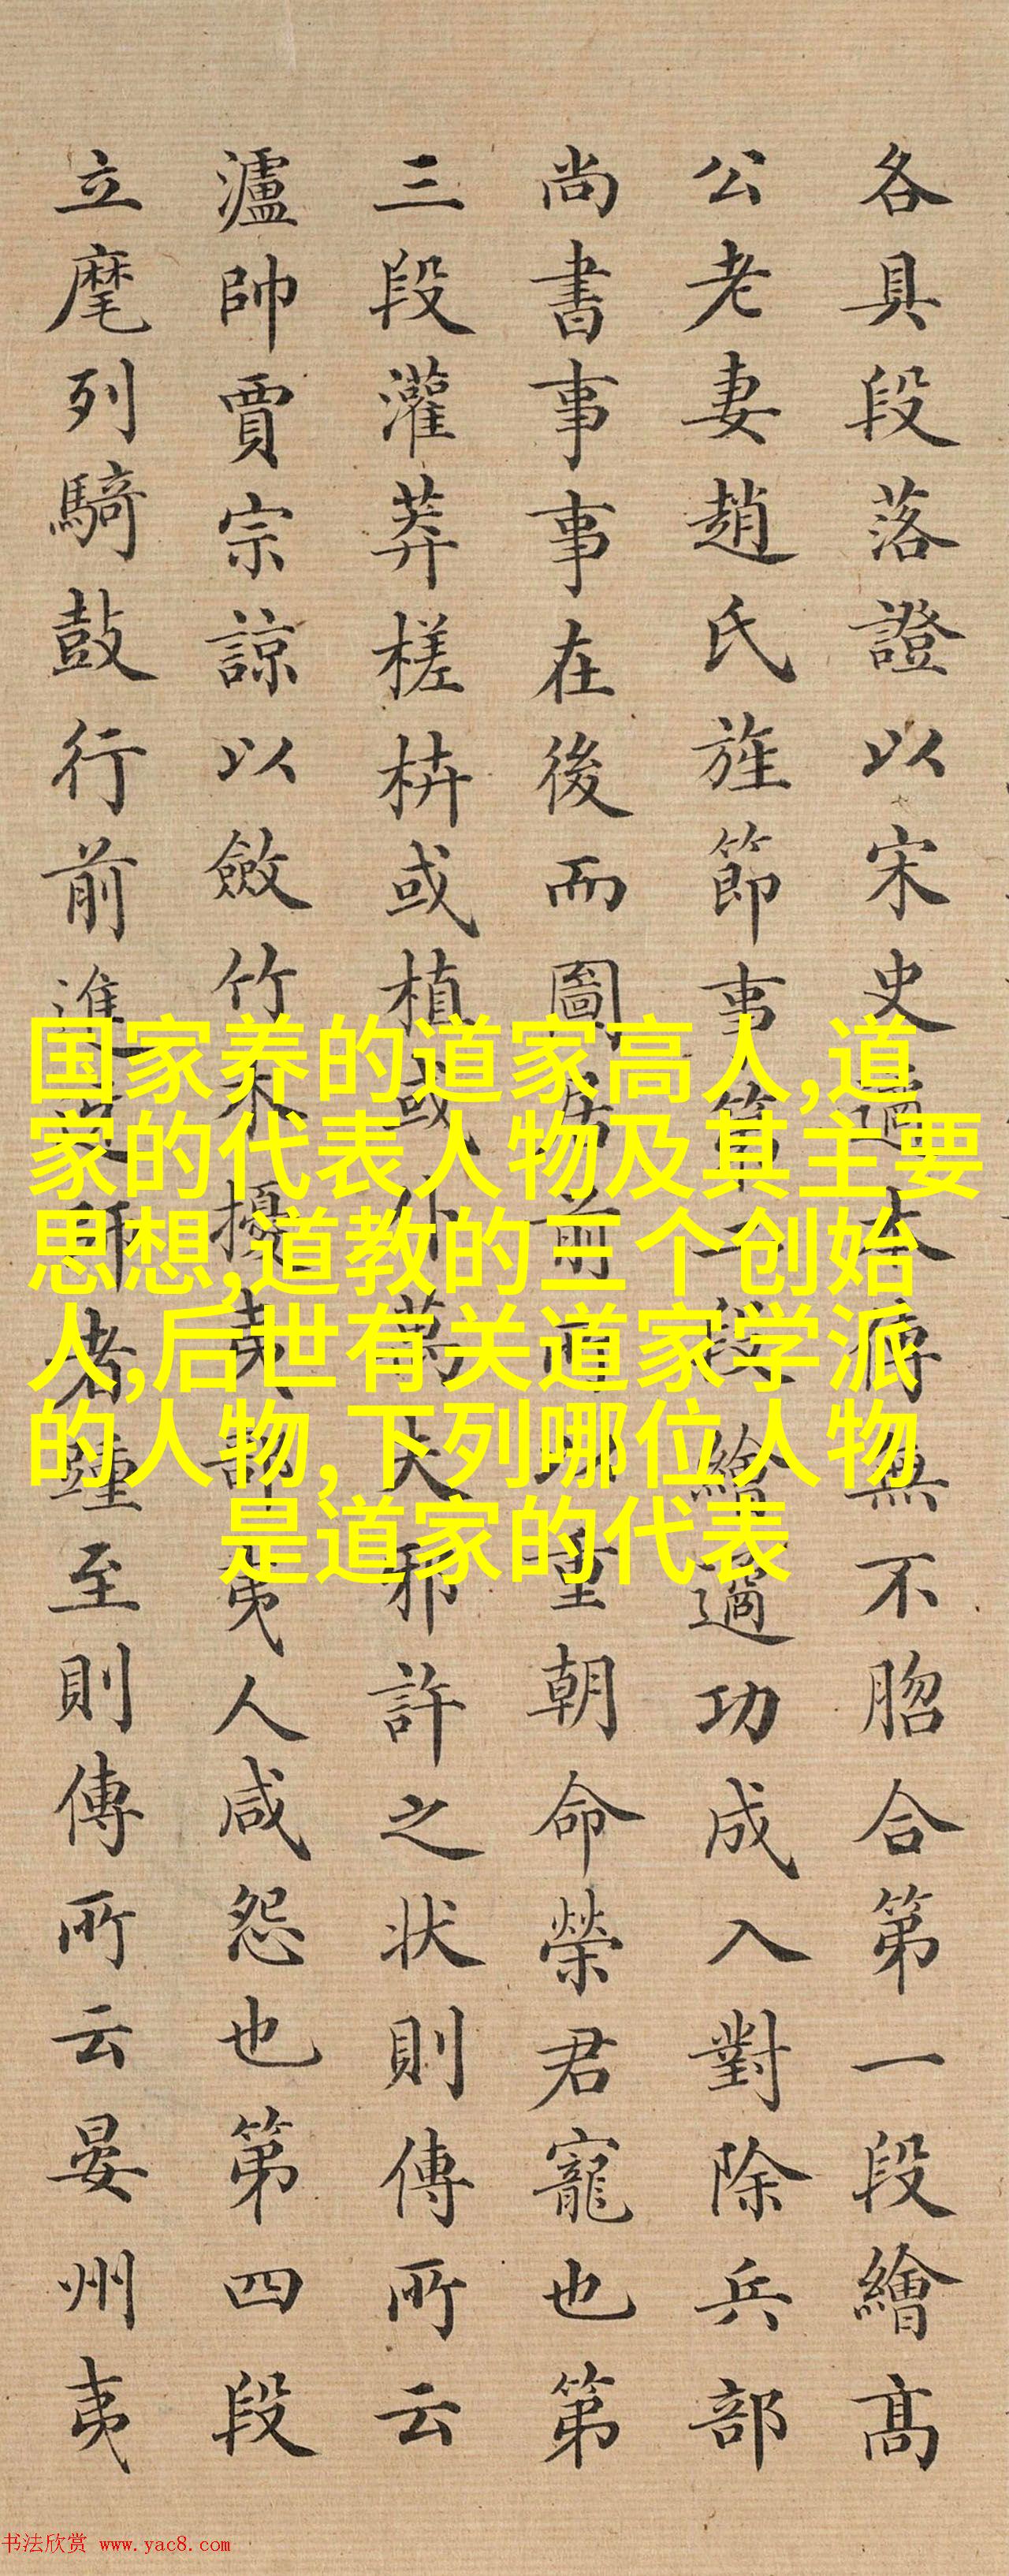 各具段落證以宋史適本傳無不脗合第一段繪高
公老妻趙氏旌節事第二段繪適功成入對除兵部
尚書事事在後而圖居前所以重朝命榮君寵也第
三段灌莽槎枿或植或仆萬夫邪許之状則傳所云
瀘帥賈宗諒以斂竹木擾夷部夷人咸怨也第四段
立麾列騎鼓行前進者至則傳所云晏州夷
国家养的道家高人,道
家的代表人物及其主要
思想,道教的三个创始
人,后世有关道家学派
的人物,下列哪位人物
是道家的代表
书法欣赏 www.yac8.com